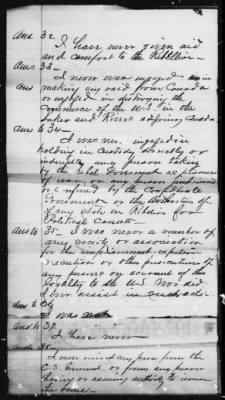 Ans 32.
I have never given aid
and comfort to the Rebellion.
Ans 33-
I never was engaged in
Ans making any raid from Canada
or engaged in destroying the
Commerce of the U.S. in the
Lakes and Rivers adjoining Canada.
Ans to 34-
I was never engaged in
holding in custody directly or
indirectly any person taken
by the rebel Government as prisoners
of war or any person
confined by the Confederate
Government or the Authorities of
any state in Rebellion for
Ans to 35- I was never a member of
any society or association
for the imprisonment expulsion
execution or other persecution of
any persons on account of their
loyalty to the U.S. Nor did
I ever assist in such acts.
Ans to 36
I was not
Ans to 37.
I have never
Ans to 38.
I never received any pass from the
C.S. Government or from any person
having or assuming authority to issue
the same.